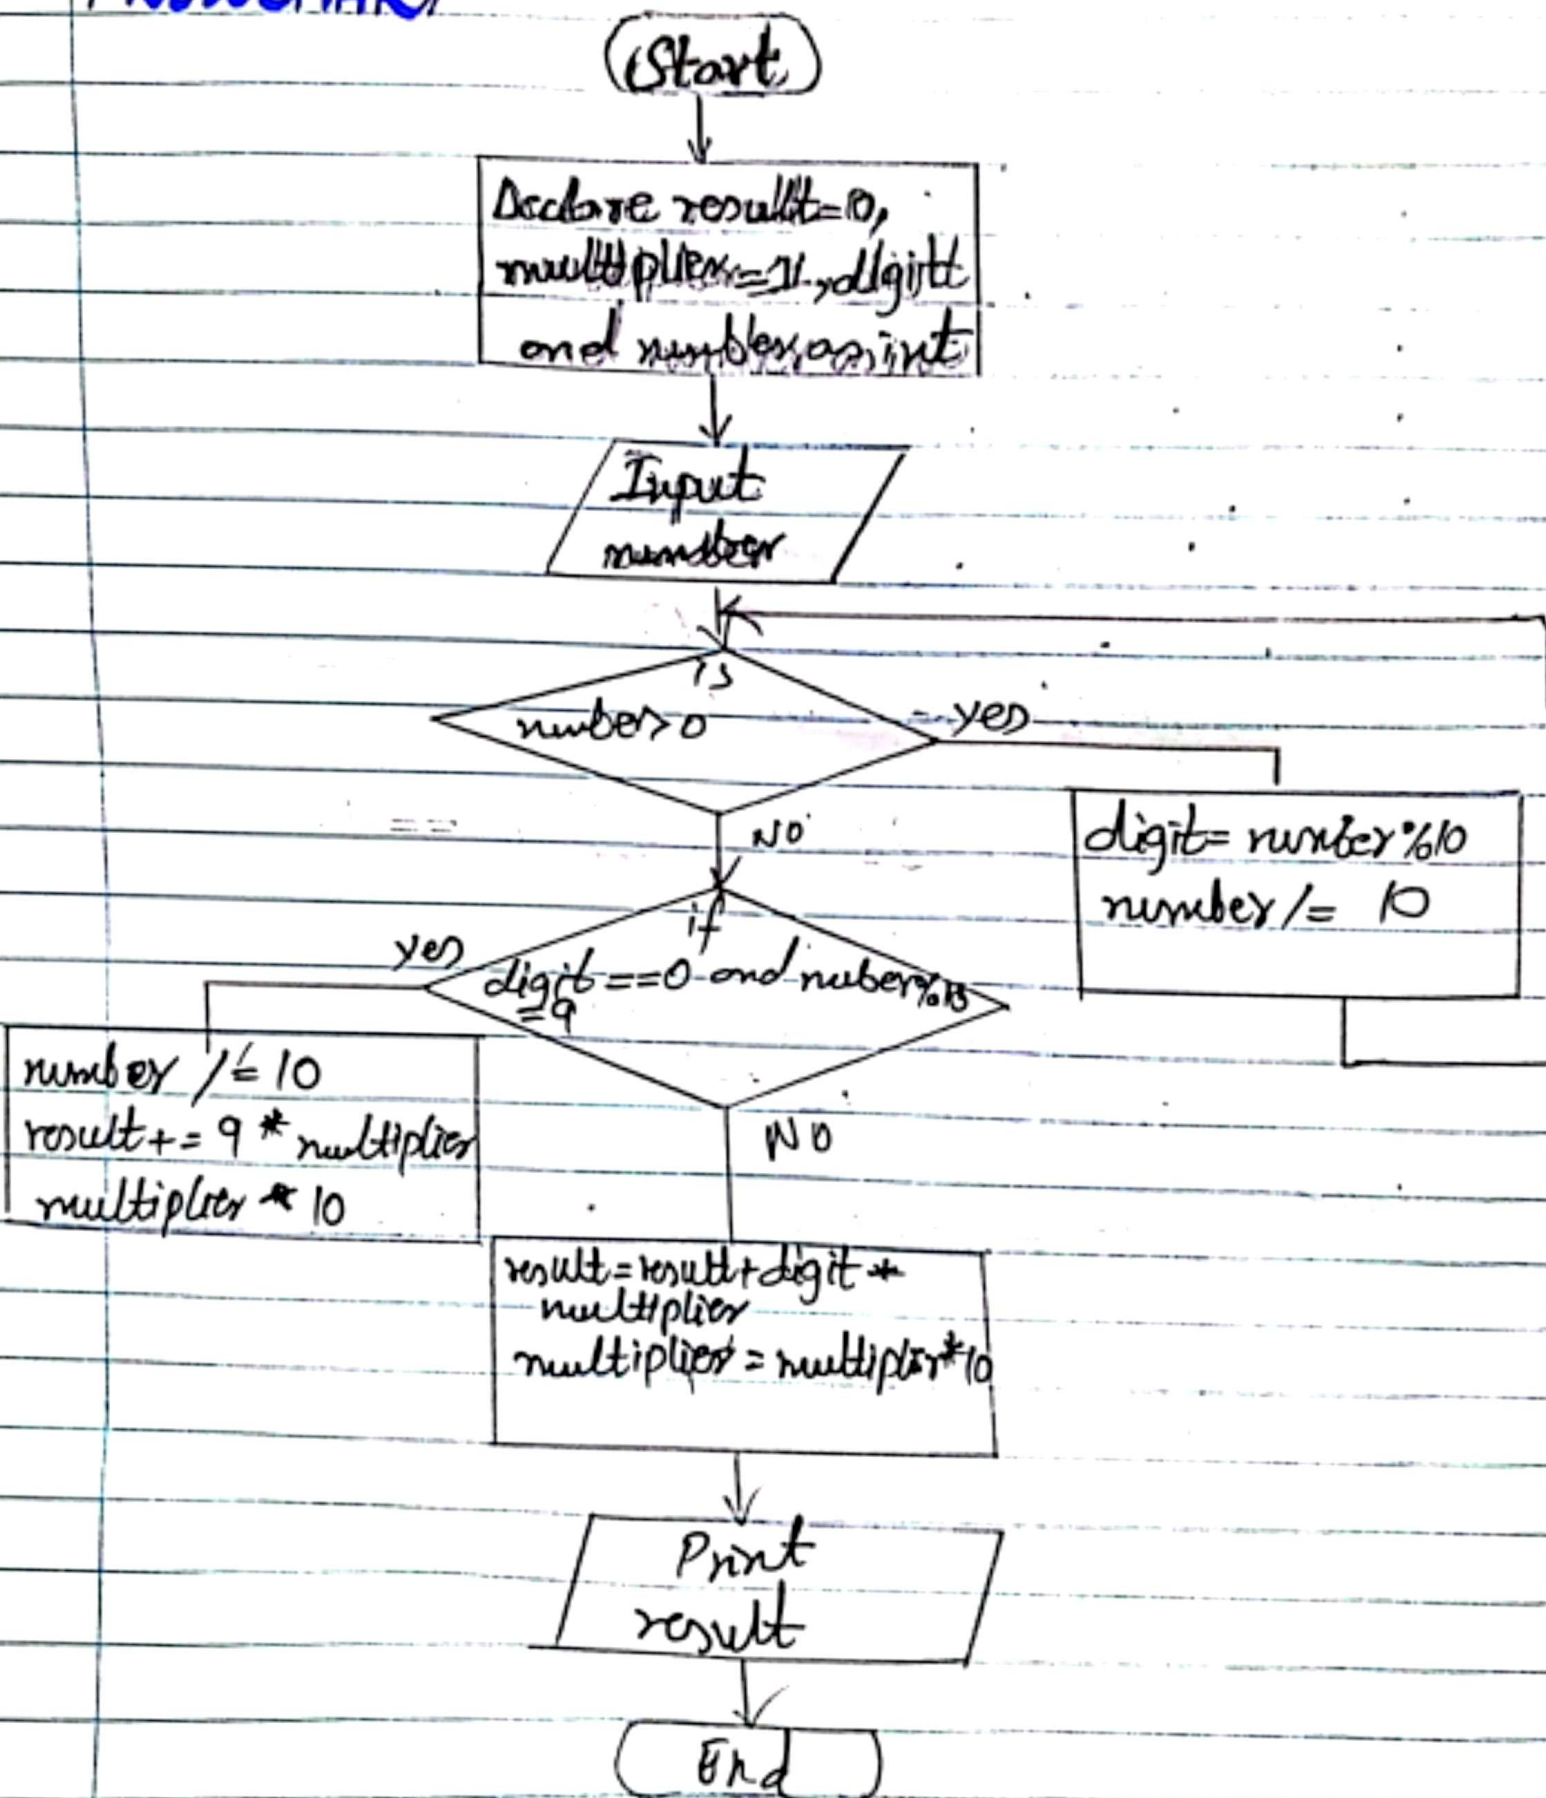 Start
Declare result=0,
multiplier=1, digit
and number as int
Input
number
is
number>0
yes
NO
digit= number%10
number/= 10
if
yes
digit==0 and nuber%
=9
number /= 10
result+= 9 * multiplier
multiplier * 10
NO
result=result+digit *
multiplier
multiplier = multiplier*10
Print
result
End